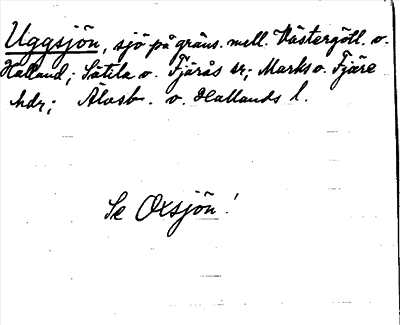 Uggsjön, sjö på gräns. mell. Västergötl. o.
Halland; Sätila o. Fjärås sr; Marks o. Fjäre
hdr; Älvsb. o. Hallands l.
Se Oxsjön!